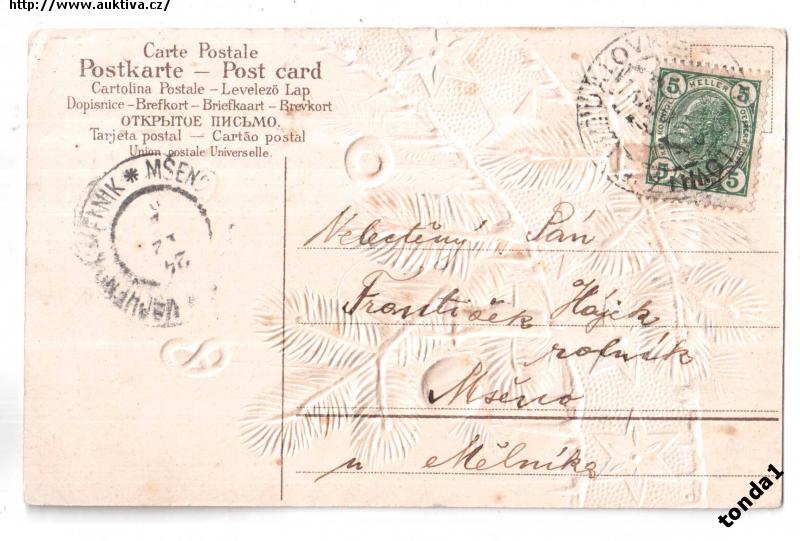 http://www.auktiva.cz/
Carte Postale
Postkarte — Post card
Cartolina Postale – Levelező Lap
Dopisnice – Brefkort – Briefkaart – Brevkort
ОТКРЫТОЕ ПИСЬМО.
Tarjeta postal — Cartão postal
Union postale Universelle.
5 HELLER 5
5 5
MŠENO
24
Velectěný Pán
František Hájek
rolník
Mšeno
u Mělníka
tonda1